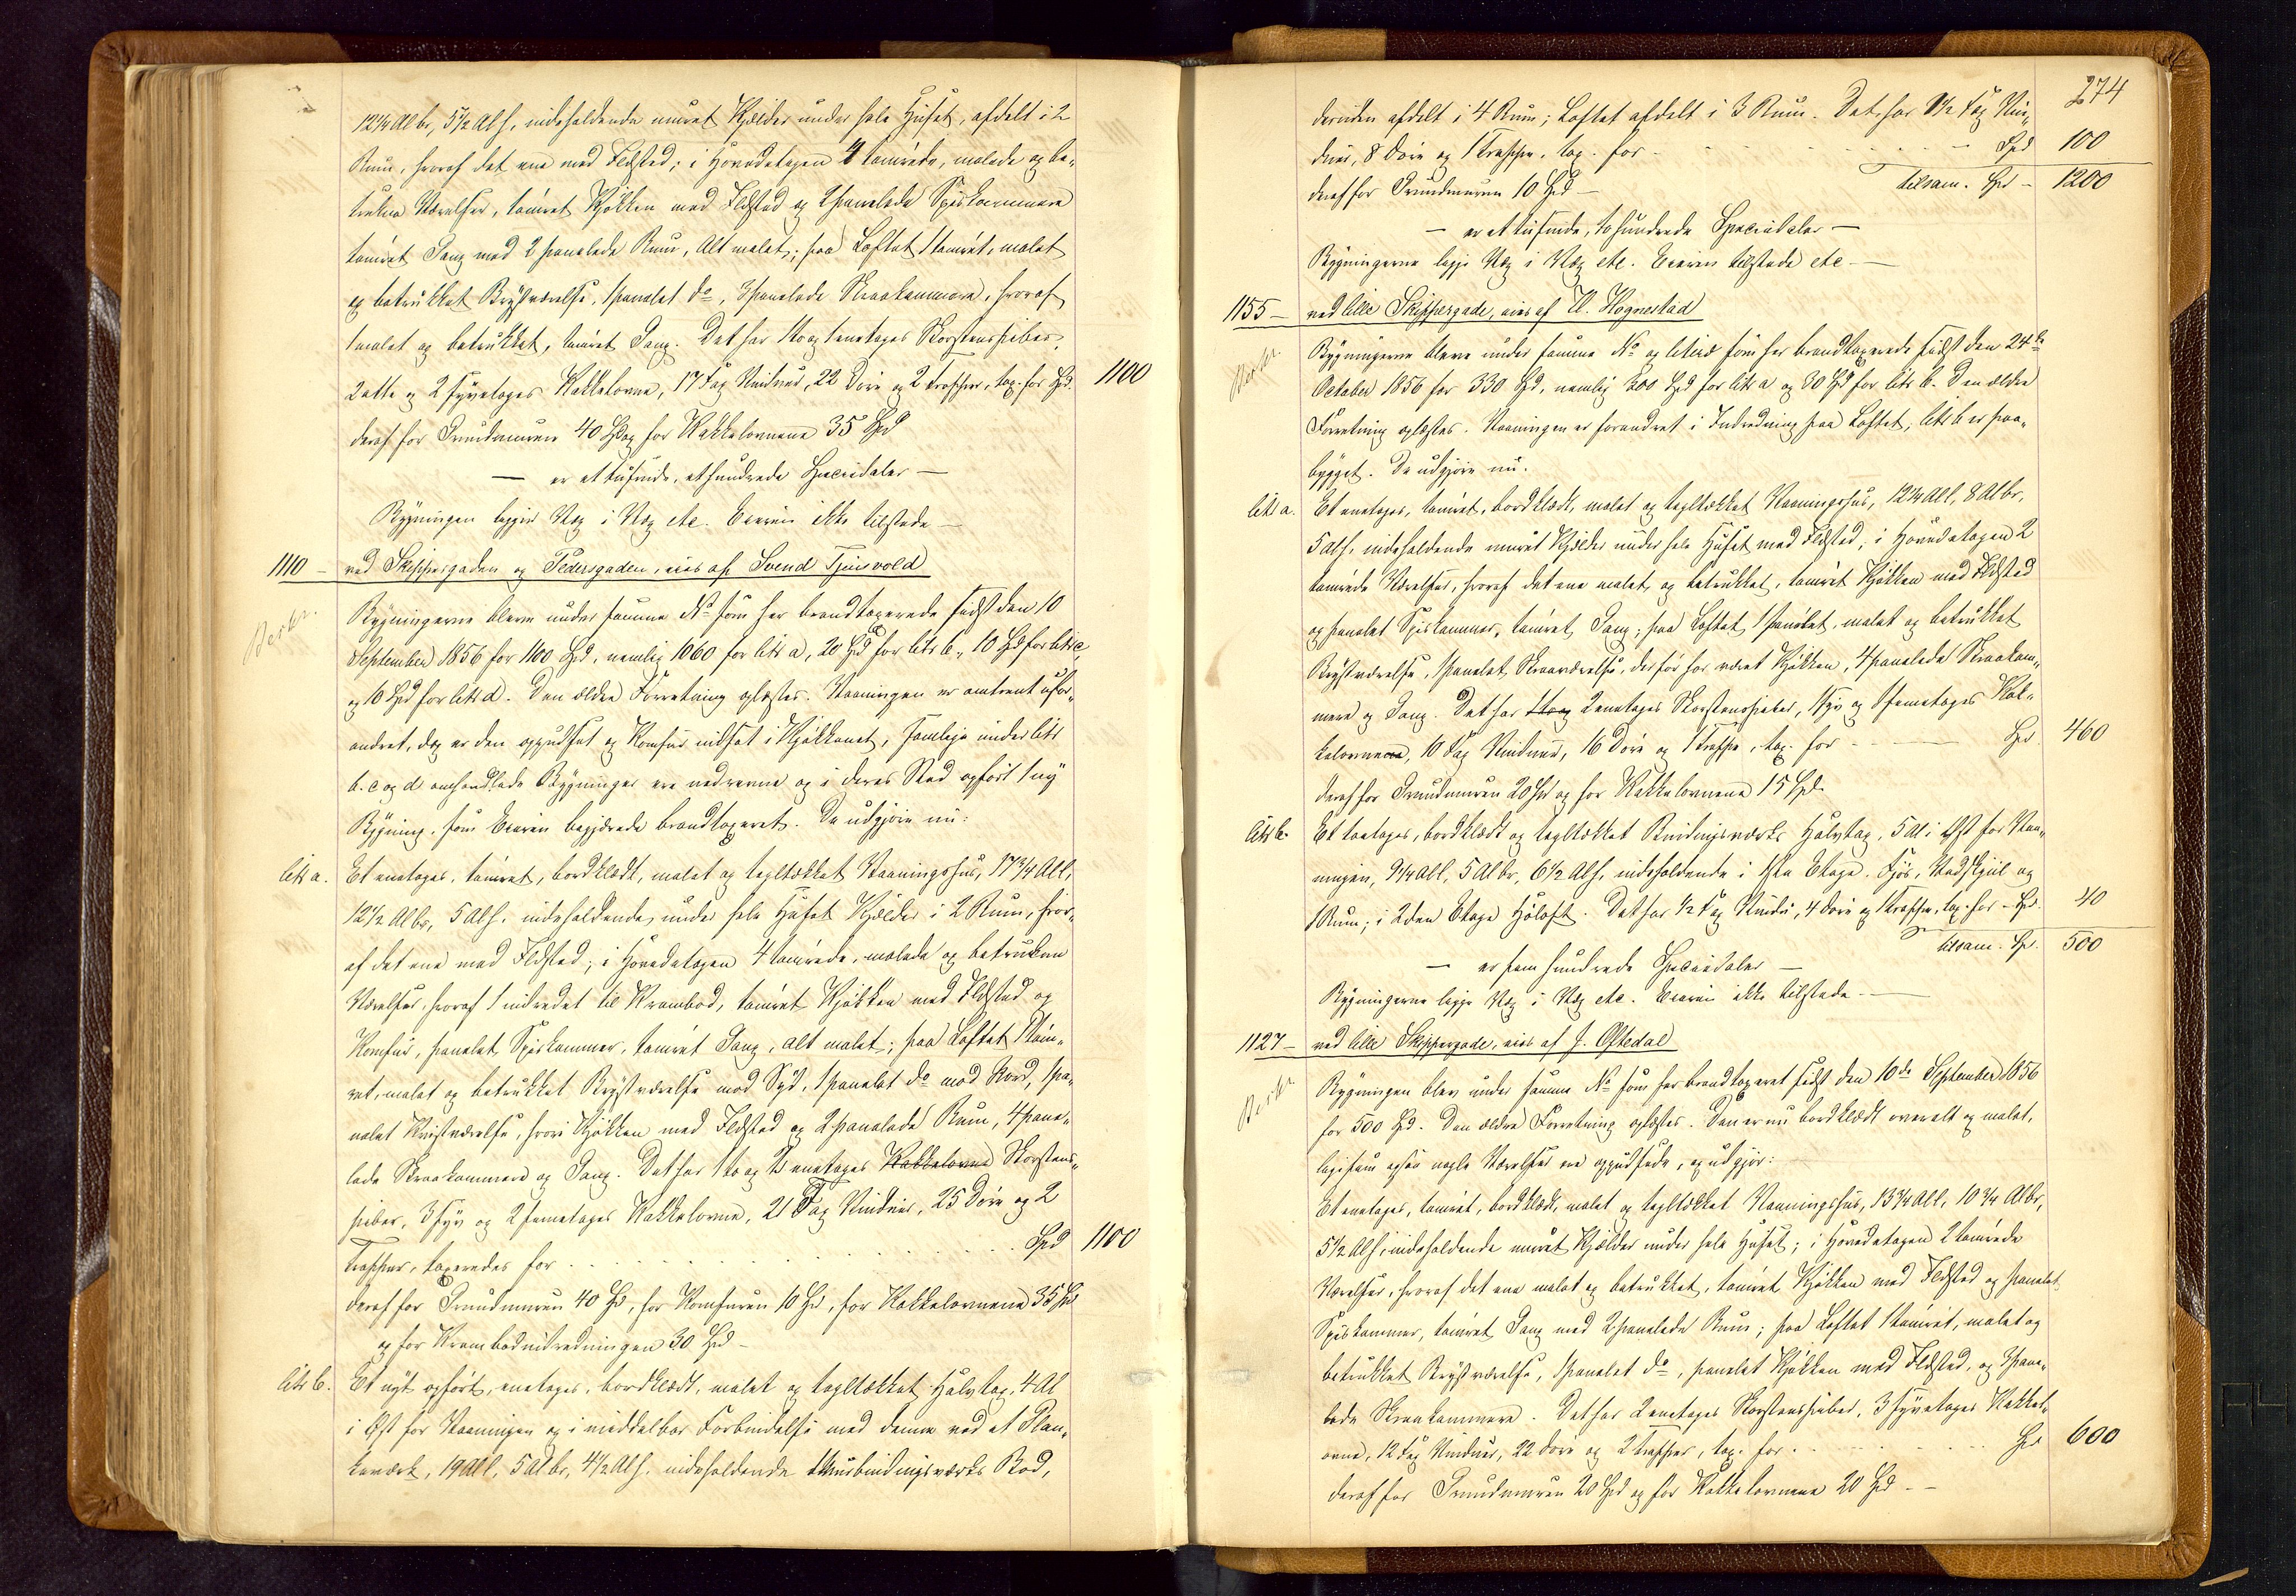 12¼ Al br, 5½ Al h, indeholdende muret Kjælder under hele Huset, afdelt i 2
Rum, hvoraf det ene med Ildsted; i Hovedetagen 4 tømrede, malede og be-
trukne Værelser, tømret Kjøkken med Ildsted og 2 panelede Spiskammere
tømret Gang med 2 panelede Rum, Alt malet; paa Loftet 1 tømret, malet
og betrukket Kvistværelse, 1 panelet do, 3 panelede Skraakammere, hvoraf
1 malet og betrukket, tømret Gang. Det har 1 to og 1 enetages Skorstenspiber,
2 otte og 2 syvetages Kakkelovne, 17 Fag Vinduer, 22 Døre og 2 Trapper, tax. for Spd. 1100
deraf for Grundmuren 40 Spd og for Kakkelovnene 35 Spd
— er et tusinde, et hundrede Speciedaler —
Bygningen ligger Væg i Væg etc. Eieren ikke tilstede —
1110 – ved Skippergaden og Pedersgaden, eies af Svend Tjensvold
Berkr.
Bygningerne bleve under samme No som her brandtaxerede sidst den 10
September 1856 for 1100 Spd, nemlig 1060 for litr a, 20 Spd for litr b, 10 Spd for litr c
og 10 Spd for litr d. Den ældre Forretning oplæstes. Vaaningen er omtrent ufor-
andret, dog er den oppudset og Komfur indsat i Kjøkkenet, samtlige under litr
b. c og d omhandlede Bygninger ere nedrevne og i deres Sted opført 1 ny
Bygning, som Eieren begjærede brandtaxeret. De udgjøre nu:
litr a. Et enetages, tømret, bordklædt, malet og tegltækket Vaaningshus, 17¾ Al l,
12½ Al br, 5 Al h, indeholdende under hele Huset Kjælder i 2 Rum, hvor-
af det ene med Ildsted; i Hovedetagen 4 tømrede, malede og betrukne
Værelser, hvoraf 1 indredet til Krambod, tømret Kjøkken med Ildsted og
Komfur, panelet Spiskammer, tømret Gang, alt malet; paa Loftet 1 tøm-
ret, malet og betrukket Kvistværelse mod Syd, 1 panelet do mod Nord, 1 pa-
nelet Kvistværelse, hvori Kjøkken med Ildsted og 2 panelede Rum, 4 pane-
lede Skraakammere og Gang. Det har 1 to og 2 enetages Kakkelovne Skorstens-
piber, 3 syv og 2 femetages Kakkelovne, 21 Fag Vinduer, 25 Døre og 2
Trapper, taxeredes for . . . . . . Spd 1100
deraf for Grundmuren 40 Spd, for Komfuren 10 Spd, for Kakkelovnene 35 Spd
og for Krambodindredningen 30 Spd –
litr b. Et nyt opført, enetages, bordklædt, malet og tegltækket Halvtag, 4 Al
i Øst for Vaaningen og i middelbar Forbindelse med denne ved et Plan-
keværk, 19 Al l, 5 Al br, 4½ Al h, indeholdende 1 Murbindingsværks Bod,
274
desuden afdelt i 4 Rum; Loftet afdelt i 3 Rum. Det har 3½ Fag Vin-
duer, 8 Døre og 1 Trappe, tax. for – – – – – Spd 100
deraf for Grundmuren 10 Spd — tilsam. Spd – 1200
— er et tusinde, to hundrede Speciedaler —
Bygningerne ligge Væg i Væg etc. Eieren tilstede etc —
1155 – ved lille Skippergade, eies af U. Hognestad
Berkr.
Bygningerne bleve under samme No og literæ som her brandtaxerede sidst den 24de
October 1856 for 330 Spd, nemlig 300 Spd for litr a og 30 Spd for litr b. Den ældre
Forretning oplæstes. Vaaningen er forandret i Indredning paa Loftet, litr b er paa-
bygget. De udgjøre nu.
litr a. Et enetages, tømret, bordklædt, malet og tegltækket Vaaningshus, 12¼ Al l, 8 Al br,
5 Al h, indeholdende muret Kjælder under hele Huset med Ildsted; i Hovedetagen 2
tømrede Værelser, hvoraf det ene malet og betrukket, tømret Kjøkken med Ildsted
og panelet Spiskammer, tømret Gang; paa Loftet 1 panelet, malet og betrukket
Kvistværelse, 1 panelet Skraaværelse, der før har været Kjøkken, 4 panelede Skraakam-
mere og Gang. Det har 1 to og 2 enetages Skorstenspiber, 1 syv og 1 femetages Kak-
kelovnene, 10 Fag Vinduer, 16 Døre og 1 Trappe, tax. for – — Spd. 460
deraf for Grundmuren 20 Spd og for Kakkelovnene 15 Spd.
litr b. Et toetages, bordklædt og tegltækket Bindingsværks Halvtag, 5 Al i Øst for Vaa-
ningen, 9¼ Al l, 5 Al br, 6½ Al h, indeholdende i 1ste Etage, Fjøs, Vedskjul og
1 Rum; i 2den Etage Høloft. Det har ½ Fag Vindu, 4 Døre og 1 Trappe, tax. for – Spd. 40
tilsam. Sp. 500
— er fem hundrede Speciedaler —
Bygningerne ligge Væg i Væg etc. Eieren ikke tilstede. —
1127 – ved lille Skippergade, eies af J. Oftedal
Berkr.
Bygningen blev under samme No som her brandtaxeret sidst den 10de September 1856
for 500 Spd. Den ældre Forretning oplæstes. Den er nu bordklædt overalt og malet,
ligesom ogsaa nogle Værelser ere oppudsede, og udgjør:
Et enetages, tømret, bordklædt, malet og tegltækket Vaaningshus, 13¾ Al l, 10¾ Al br,
5½ Al h, indeholdende muret Kjælder under hele Huset; i Hovedetagen 2 tømrede
Værelser, hvoraf det ene malet og betrukket, tømret Kjøkken med Ildsted og panelet
Spiskammer, tømret Gang med 2 panelede Rum; paa Loftet 1 tømret, malet og
betrukket Kvistværelse, 1 panelet do, panelet Kjøkken med Ildsted, og 3 pane-
lede Skraakammere. Det har 2 enetages Skorstenspiber, 3 syvetages Kakkel-
ovne, 12 Fag Vinduer, 22 Døre og 2 Trapper, tax. for . . . . Spd 600
deraf for Grundmuren 20 Spd og for Kakkelovnene 20 Spd. –